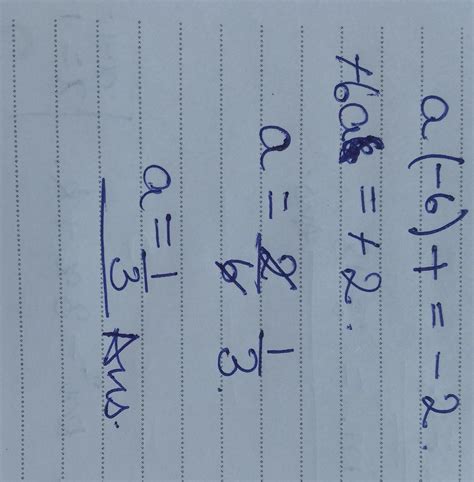 a(-6)+ = -2.
+6a = +2.
a = 2/6 1/3.
a = 1/3 Ans.